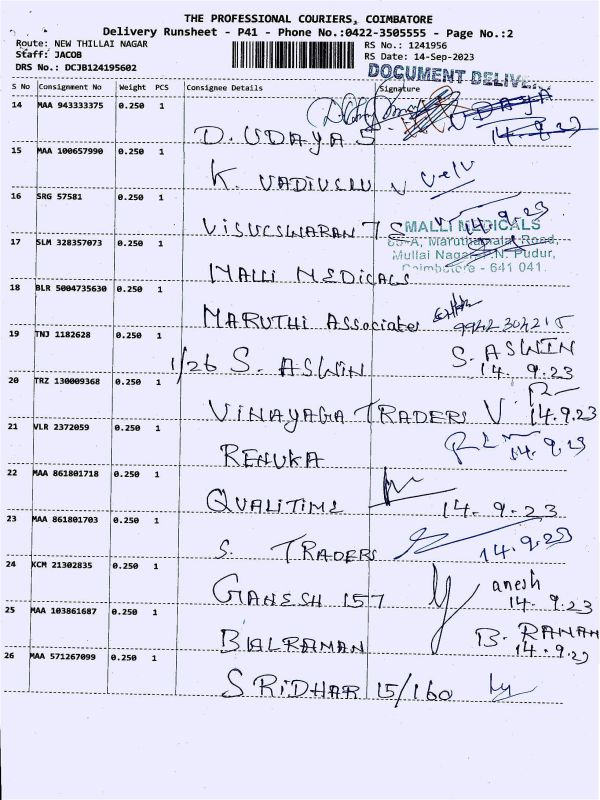 THE PROFESSIONAL COURIERS, COIMBATORE
Delivery Runsheet - P41 - Phone No.:0422-3505555 - Page No.:2
Route: NEW THILLAI NAGAR RS No.: 1241956
Staff: JACOB RS Date: 14-Sep-2023
DRS No.: DCJB124195602
DOCUMENT DELIVE
S No Consignment No Weight PCS Consignee Details Signature
14 MAA 943333375 0.250 1
D. UDAYA S 14.9.23
15 MAA 100657990 0.250 1
K. VADIVELU V Velu
16 SRG 57581 0.250 1
VISUESWARAN T S 14.9.23
MALLI MEDICALS
17 SLM 328357073 0.250 1 65-A, Maruthamalai Road,
Mullai Nagar, P.N. Pudur,
MALLI MEDICALS Coimbatore - 641 041.
18 BLR 5004735630 0.250 1
MARUTHI Associates 9942 304215
19 TNJ 1182628 0.250 1
1/26 S. ASWIN S. ASWIN
14. 9.23
20 TRZ 130009368 0.250 1
VINAYAGA TRADERS V. 14.9.23
21 VLR 2372059 0.250 1
RENUKA 14.9.23
22 MAA 861801718 0.250 1
QUALITIME 14.9.23
23 MAA 861801703 0.250 1
S. TRADERS 14.9.23
24 KCM 21302835 0.250 1
GANESH 157 anesh
14.9.23
25 MAA 103861687 0.250 1
BALRAMAN B. RANAN
14.9.23
26 MAA 571267099 0.250 1
SRIDHAR 15/160